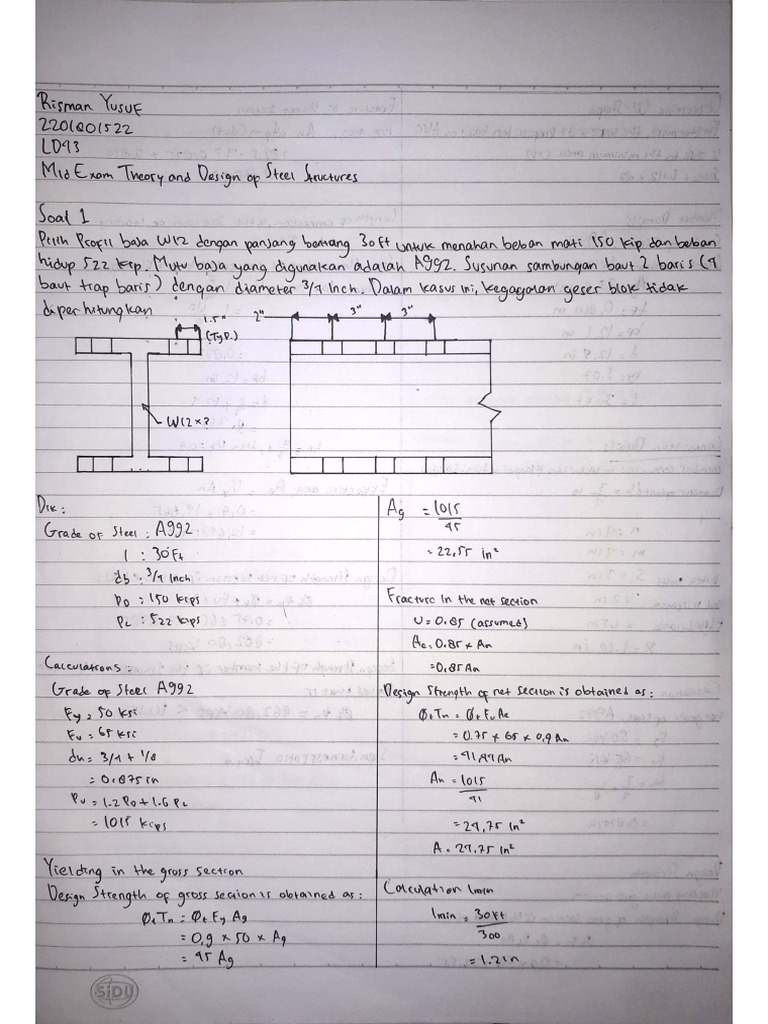 Risman Yusuf
2201801522
LD43
Mid Exam Theory and Design of Steel Structures
Soal 1
Pilih Profil baja W12 dengan panjang bentang 30 ft untuk menahan beban mati 150 kip dan beban
hidup 522 kip. Mutu baja yang digunakan adalah A992. Susunan sambungan baut 2 baris (4
baut tiap baris) dengan diameter 3/4 Inch. Dalam kasus ini, kegagalan geser blok tidak
diperhitungkan
1.5"
(Typ.)
2" 3" 3"
W12 x ?
Dik :
Grade of Steel : A992
l : 30 Ft
db : 3/4 Inch
PD : 150 kips
PL : 522 kips
Calculations :
Grade of Steel A992
Fy = 50 ksi
Fu = 65 ksi
dn = 3/4 + 1/8
= 0.875 in
Pu = 1.2 PD + 1.6 PL
= 1015 kips
Yielding in the gross section
Design Strength of gross section is obtained as :
ØtTn = Øt Fy Ag
= 0,9 x 50 x Ag
= 45 Ag
Ag = 1015
45
= 22,55 in²
Fracture In the net section
U = 0.85 (assumed)
Ae = 0.85 x An
= 0,85 An
Design Strength of net section is obtained as :
ØtTn = Øt Fu Ae
= 0.75 x 65 x 0,9 An
= 41,44 An
An = 1015
41
= 24,75 in²
A = 24,75 in²
Calculation lmin
lmin = 30 ft
300
= 1.2 in
SiDU